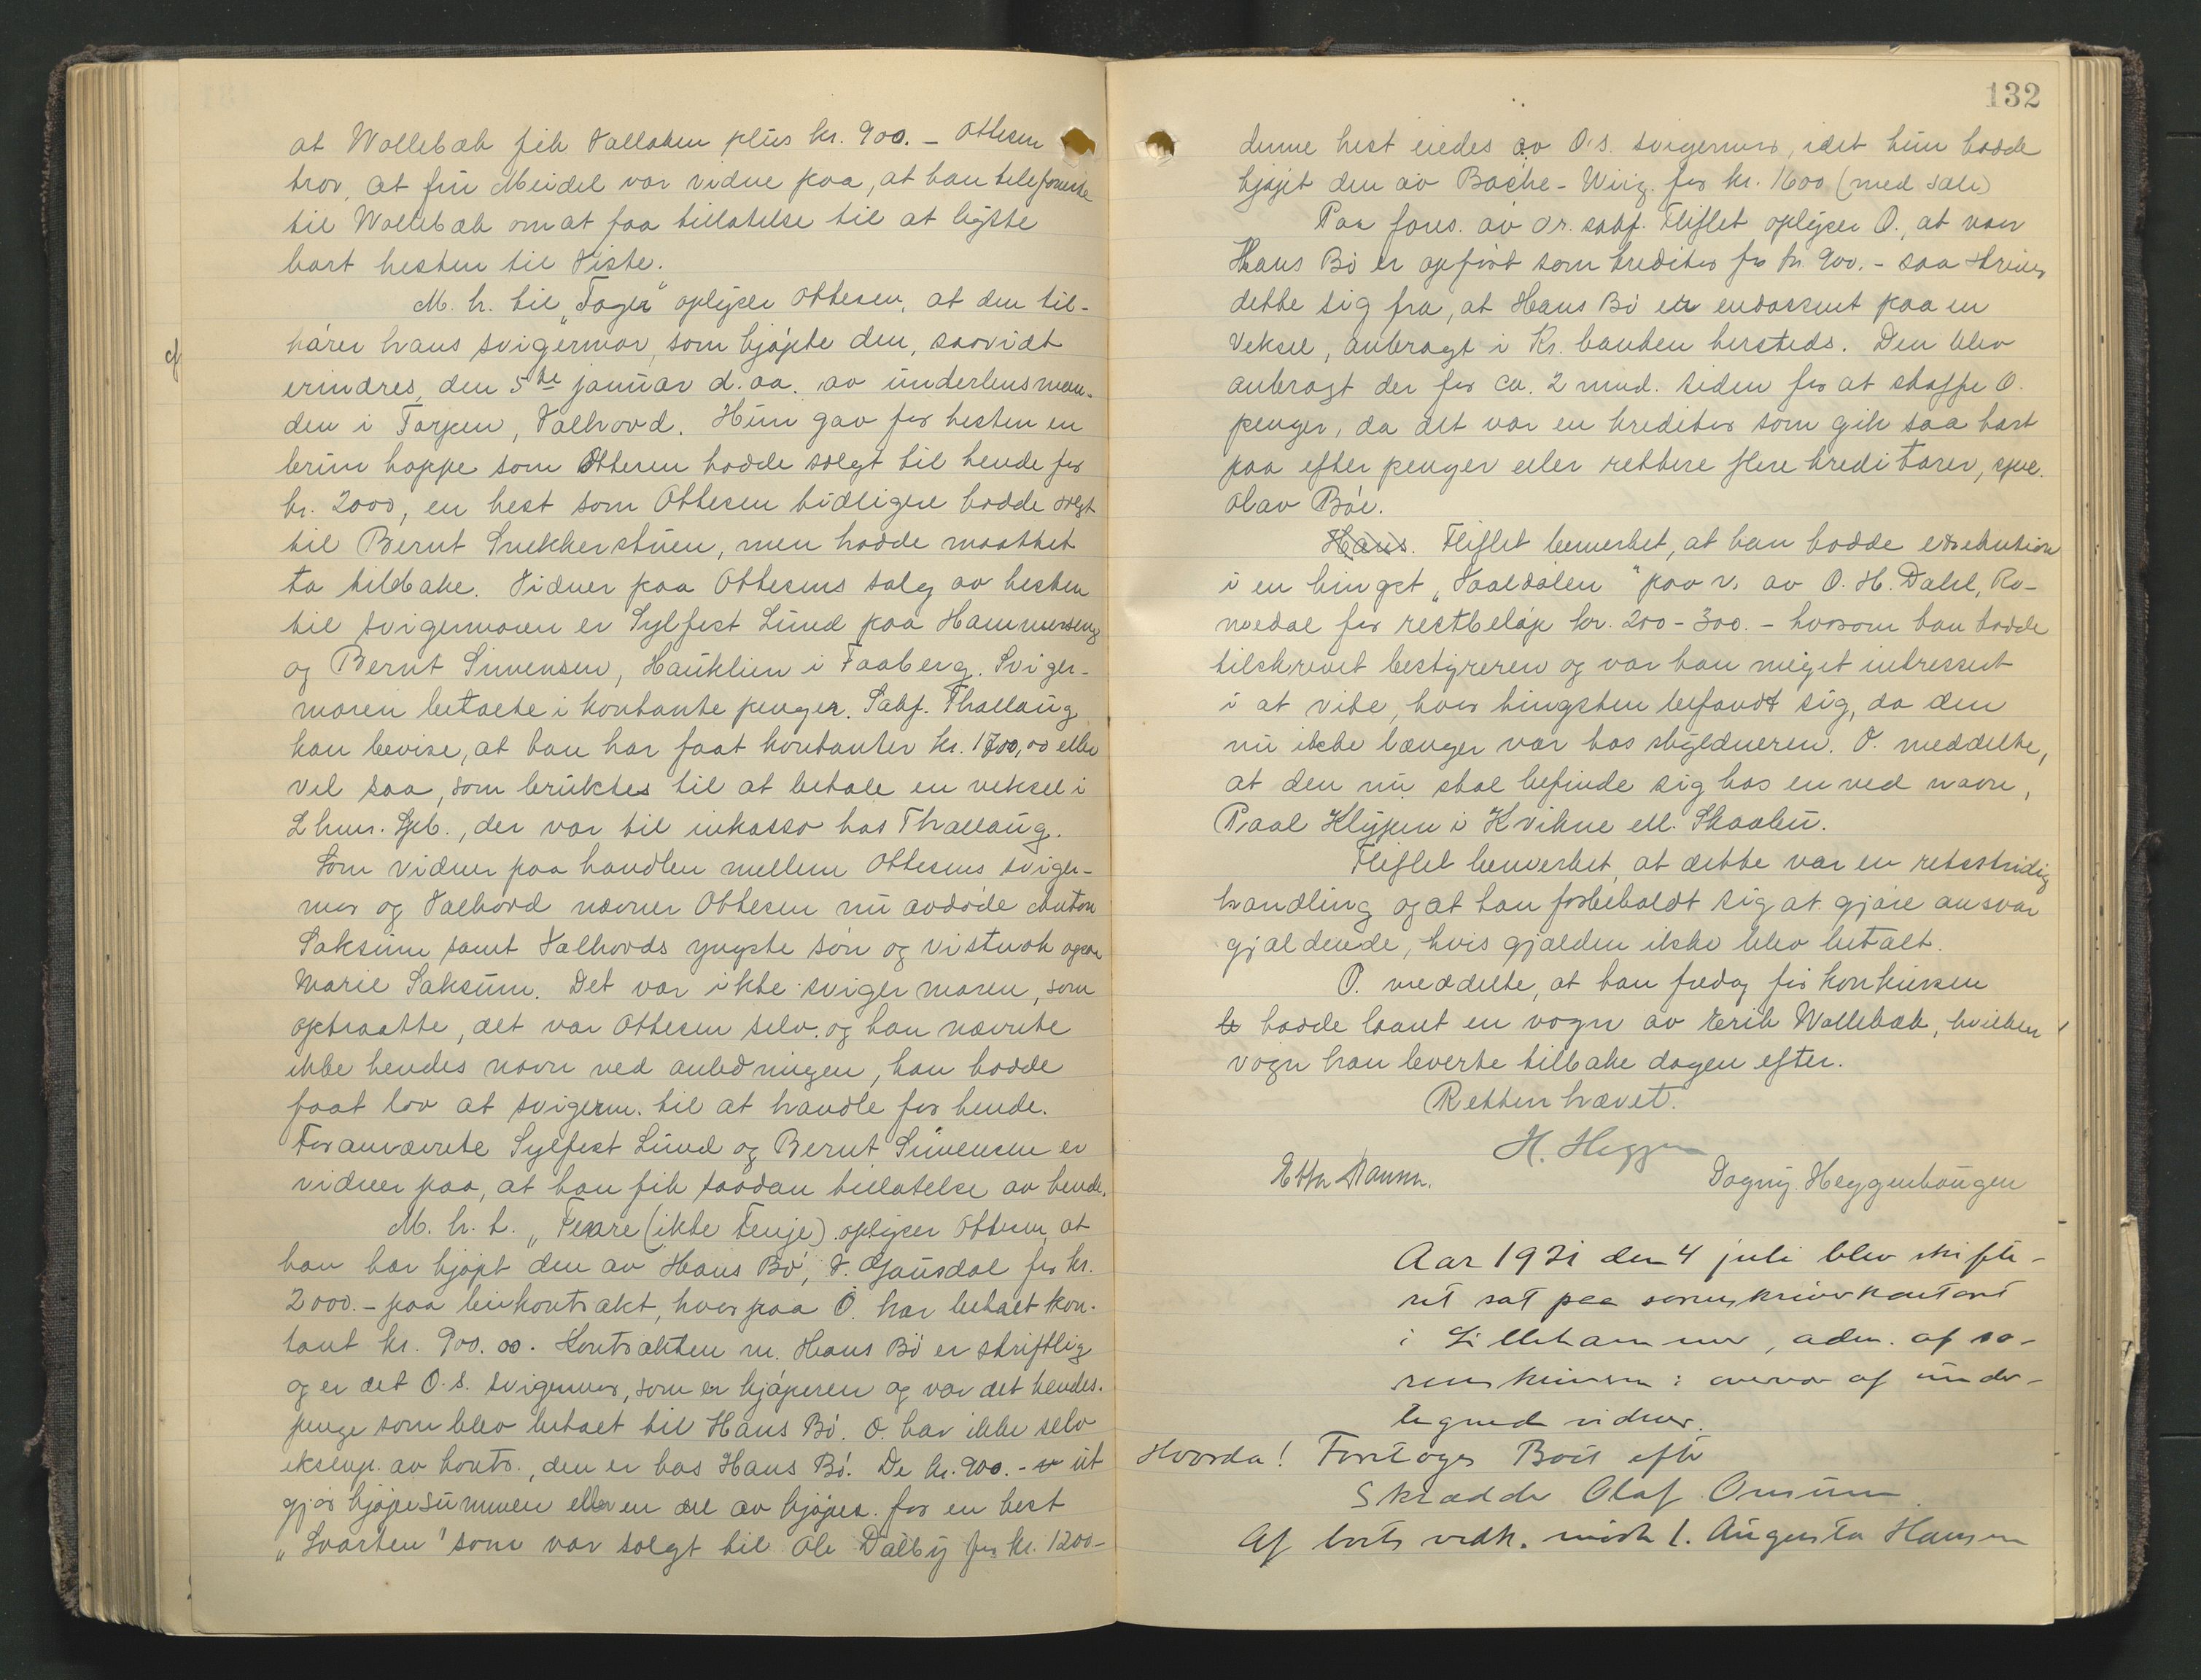 at Wollebæk fik Valloken plus kr. 900. - Ottesen
tror, at fru Meidel var vidne paa, at han telefonerte
til Wollebæk om at faa tillatelse til at bytte
bort hesten til Viste.
M. h. til "Fager" oplyser Ottesen, at den til-
hører hans svigermor, som kjøpte den, saavidt
erindres, den 5te januar d. aa. av underlensman-
den i Torpen, Valhovd. Hun gav for hesten en
brun hoppe som Ottesen hadde solgt til hende for
kr. 2000, en hest som Ottesen tidligere hadde solgt
til Bernt Snekkerstuen, men hadde maattet
ta tilbake. Vidner paa Ottesens salg av hesten
til svigermoren er Sylfest Lund paa Hammerseng
og Bernt Simensen, Hauklien i Faaberg. Sviger-
moren betalte i kontante penger. Sakf. Thallaug
kan bevise, at han har faat kontanter kr. 1700,00 eller
vel saa, som bruktes til at betale en veksel i
Lhmr. Spb., der var til inkasso hos Thallaug.
Som vidner paa handlen mellem Ottesens sviger-
mor og Valhovd nævner Ottesen nu avdøde Anton
Saksum samt Valhovds yngste søn og vistnok ogsaa
Marie Saksum. Det var ikke svigermoren, som
optraatte, det var Ottesen selv. og han nævnte
ikke hendes navn ved anledningen, han hadde
faat lov at svigerm. til at handle for hende.
Forannævnte Sylfest Lund og Bernt Simensen er
vidner paa, at han fik saadan tillatelse av hende.
M. h. t. "Fexre (ikke Fenje) oplyser Ottesen, at
han har kjøpt den av Hans Bø, V. Gausdal for kr.
2000. - paa leiekontrakt, hvorpaa O. har betalt kon-
tant kr. 900.00. Kontrakten m. Hans Bø er skriftlig
og er det O.s. svigermor, som er kjøperen og var det hendes
penge som blev betalt til Hans Bø. O. har ikke selv
eksempl. av kontr., den er hos Hans Bø. De kr. 900. - ut
gjør kjøpesummen eller en del av kjøpes. for en hest
"Svarten" som var solgt til Ole Dalby for kr. 1200-
132
denne hest eiedes av O.s. svigermor, idet hun hadde
kjøpt den av Bache-Wiig. for kr. 1600 (med sæle)
Paa fores. av o.r. sakf. Fliflet oplyser O., at naar
Hans Bø er opført som kreditor for kr. 900. - saa skriver
dette sig fra, at Hans Bø er endossent paa en
veksel, anbragt i Kr. banken hersteds. Den blev
anbragt der for ca. 2 mnd. siden for at skaffe O.
penger, da det var en kreditor som gik saa hart
paa efter penger eller rettere flere kreditorer, spec.
Olav Bøe.
Hans. Fliflet bemerket, at han hadde exsekution
i en hingst "Vaaldølen" paa v. av O. H. Dahl, Ro-
medal for restbeløp kr. 200 - 300. - hvorom han hadde
tilskrevet bestyreren og var han meget intressert
i at vite, hvor hingsten befandt sig, da den
nu ikke længer var hos skyldneren. O. meddelte,
at den nu skal befinde sig hos en ved navn,
Paal Klypen i Kvikne ell. Skaabu.
Fliflet bemerket, at dette var en retsstridig
handling og at han forbeholdt sig at gjøre ansvar
gjældende, hvis gjælden ikke blev betalt.
O. meddelte, at han fredag før konkursen
hadde laant en vogn av Erik Wollebæk, hvilken
vogn han leverte tilbake dagen efter.
Retten hævet.
H. Heggen
Dagny Heggenhaugen
Aar 1921 den 4 juli blev skifte-
ret sat paa sorenskriverkontoret
i Lillehammer, adm. af so-
renskriveren i overvær af under-
tegnede vidner.
Hvorda! Foretoges Boet efter
Skrædder Olaf Onsum
Af borts vedk. mødte 1. Augusta Hansen